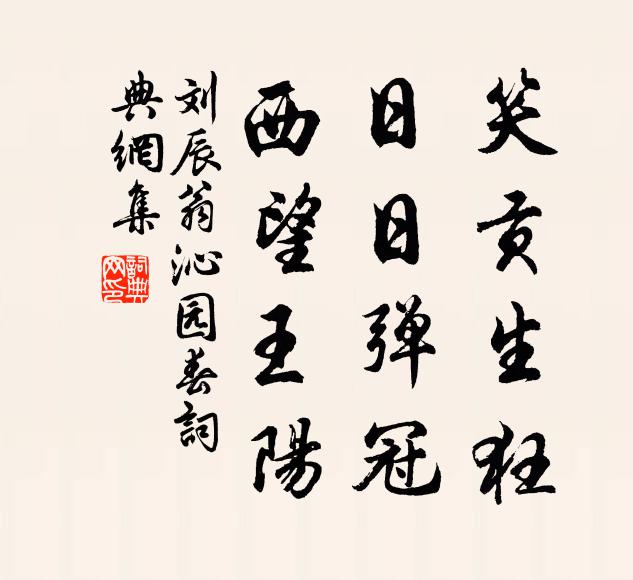 笑贡生狂
日日弹冠
西望王陽
刘辰翁沁园春詞
典網集
詞典网印